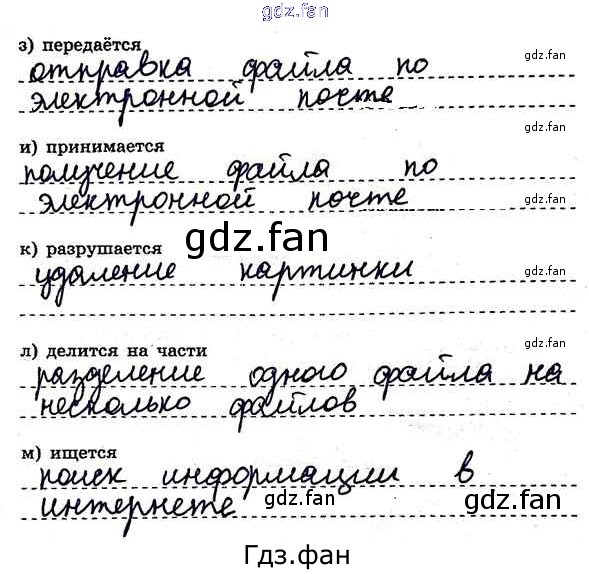 gdz.fan
з) передаётся
gdz.fan
отправка файла по
электронной почте
gdz.fan
и) принимается
получение файла по
электронной почте
gdz.fan
gdz.fan
к) разрушается
удаление картинки
gdz.fan
л) делится на части
gdz.fan
разделение одного файла на
несколько файлов
м) ищется
поиск информации в
интернете
gdz.fan
gdz.fan
Гдз.фан